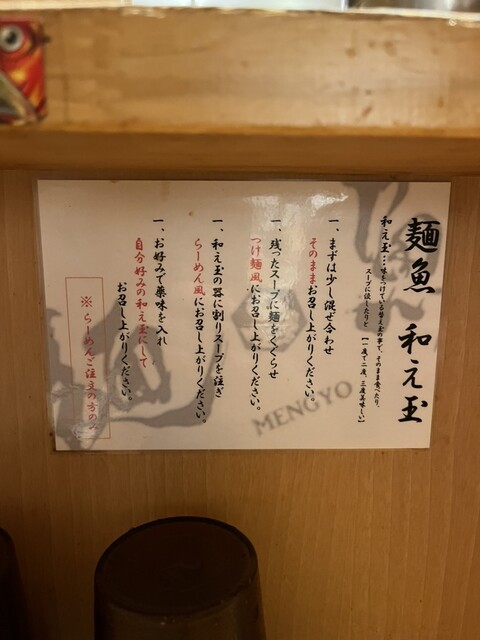 麺魚 和え玉
和え玉…味をつけている替え玉の事で、そのまま食べたり、
スープに浸したりと【一度で二度、三度美味しい】
一、まずは少し混ぜ合わせ
そのままお召し上がりください。
一、残ったスープに麺をくぐらせ
つけ麺風にお召し上がりください。
一、和え玉の器に割りスープを注ぎ
らーめん風にお召し上がりください。
一、お好みで薬味を入れ
自分好みの和え玉にして
お召し上がりください。
※らーめんご注文の方のみ
MENGYO